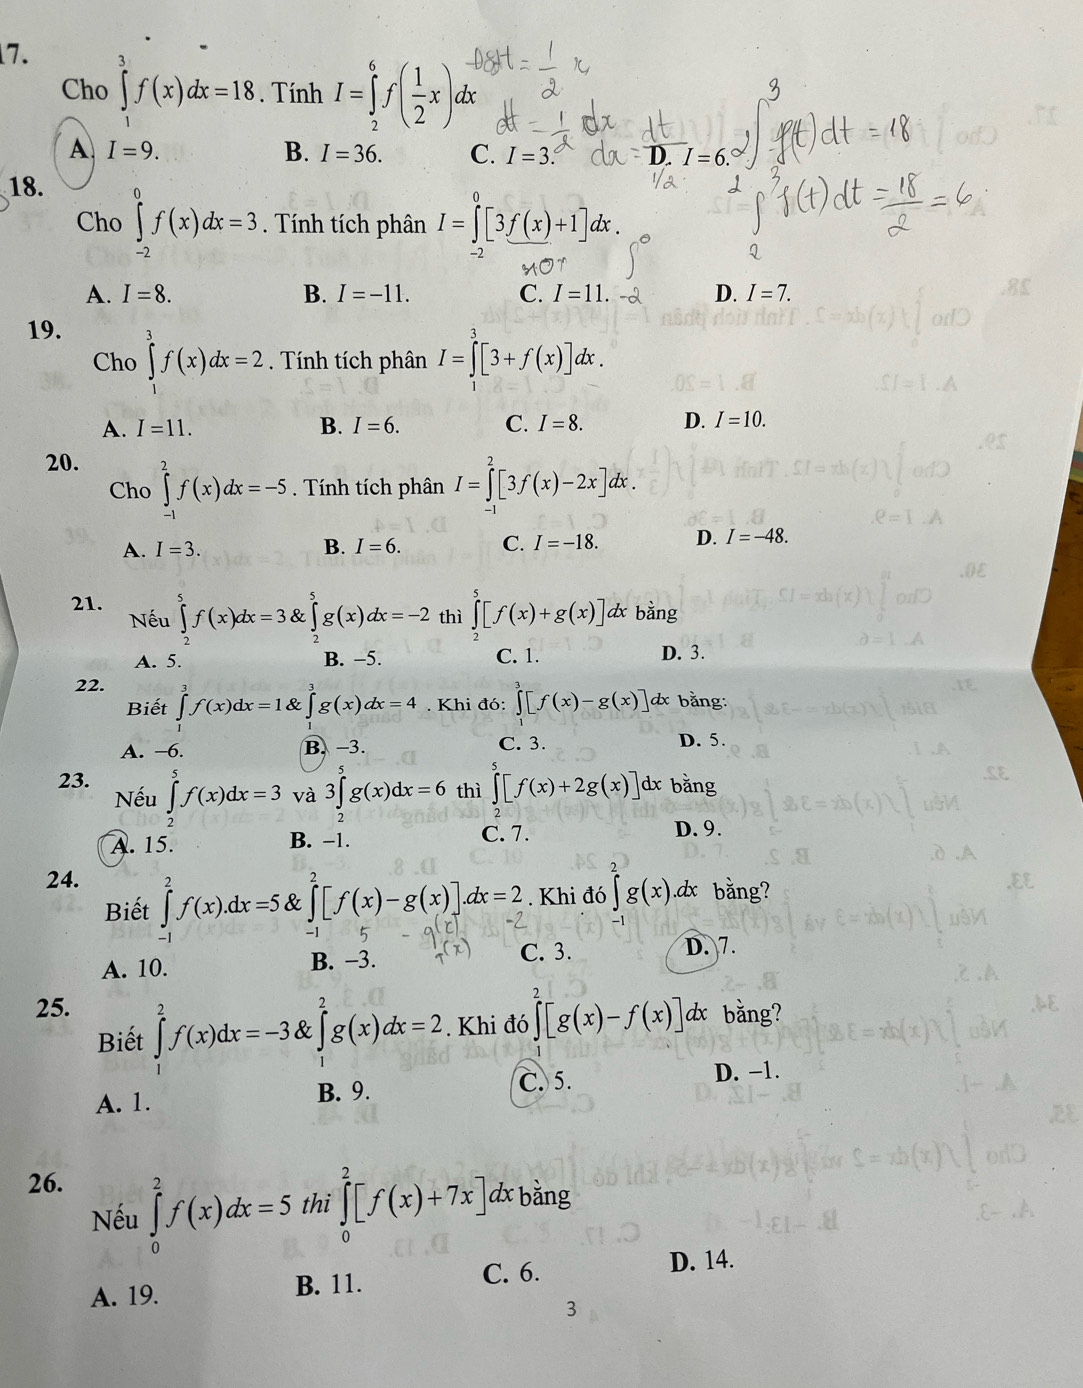 17.
Cho ∫₁³ f(x)dx = 18. Tính I = ∫₂⁶ f(1/2 x)dx
Đặt = 1/2 x
dt = 1/2 dx
dx = dt / 1/2
2∫ ³ f(t)dt = 18
∫₂³ f(t)dt = 18/2 = 6
A. I = 9. B. I = 36. C. I = 3. D. I = 6.
18.
Cho ∫₋₂⁰ f(x)dx = 3. Tính tích phân I = ∫₋₂⁰ [3f(x)+1]dx.
∫₋₂⁰
A. I = 8. B. I = −11. C. I = 11. D. I = 7.
19.
Cho ∫₁³ f(x)dx = 2. Tính tích phân I = ∫₁³ [3 + f(x)]dx.
A. I = 11. B. I = 6. C. I = 8. D. I = 10.
20.
Cho ∫₋₁² f(x)dx = −5. Tính tích phân I = ∫₋₁² [3f(x) − 2x]dx.
A. I = 3. B. I = 6. C. I = −18. D. I = −48.
21.
Nếu ∫₂⁵ f(x)dx = 3 & ∫₂⁵ g(x)dx = −2 thì ∫₂⁵ [f(x) + g(x)]dx bằng
A. 5. B. −5. C. 1. D. 3.
22.
Biết ∫₁³ f(x)dx = 1 & ∫₁³ g(x)dx = 4 . Khi đó: ∫₁³ [f(x) − g(x)]dx bằng:
A. −6. B. −3. C. 3. D. 5.
23.
Nếu ∫₂⁵ f(x)dx = 3 và 3∫₂⁵ g(x)dx = 6 thì ∫₂⁵ [f(x) + 2g(x)]dx bằng
A. 15. B. −1. C. 7. D. 9.
24.
Biết ∫₋₁² f(x).dx = 5 & ∫₋₁² [f(x) − g(x)].dx = 2 . Khi đó ∫₋₁² g(x).dx bằng?
5 − g(x) −2
A. 10. B. −3. C. 3. D. 7.
25.
Biết ∫₁² f(x)dx = −3 & ∫₁² g(x)dx = 2. Khi đó ∫₁² [g(x) − f(x)]dx bằng?
A. 1. B. 9. C. 5. D. −1.
26.
Nếu ∫₀² f(x)dx = 5 thì ∫₀² [f(x) + 7x]dx bằng
A. 19. B. 11. C. 6. D. 14.
3